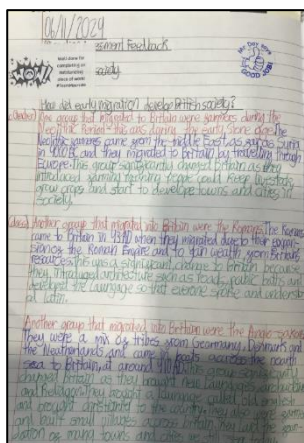 06/11/2024
ssment Feedback
WOW!
Well done for
completing an
outstanding
piece of work!
Mr Day says
GOOD JOB!
society
How did early migration develop British society?
One group that migrated to Britain were farmers during the
Neolithic Period - this was during the early stone age. The
Neolithic farmers came from the middle East as far as Syria
in 4000 BC and they migrated to Britain by travelling through
Europe. This group significantly changed Britain as they
introduced farming people could keep livestock,
grow crops and start to develope towns and cities in
society.
One group that migrated into Britain were the Romans. The Romans
came to Britain in 43AD when they migrated due to their expan-
sion of the Roman Empire and to gain wealth from Britains
resources. This was a significant change to Britain because
they introduced architecture such as roads, public baths and
developed the language so that everyone spoke and understood
Latin.
Another group that migrated into Britain were the Anglo-Saxons
They were a mix of tribes from Germany, Denmark and
the Neatherlands and came in boats across the north
sea to britain, at around 410AD. This group
changed britain as they brought new language, architecture
and religion. They brought a language called old english
and brought christianity to the country. They
and built small villages across britain
of many towns and cities